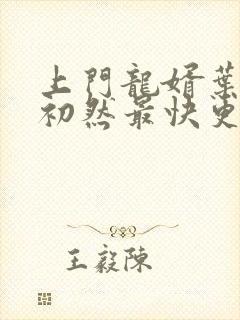 上門龍婿葉
初然最快更
王毅陳